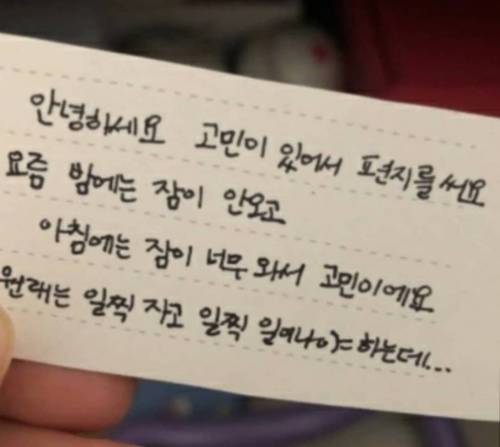 안녕하세요 고민이 있어서 편지를 써요
요즘 밤에는 잠이 안오고
아침에는 잠이 너무 와서 고민이에요
원래는 일찍 자고 일찍 일어나야 하는데...